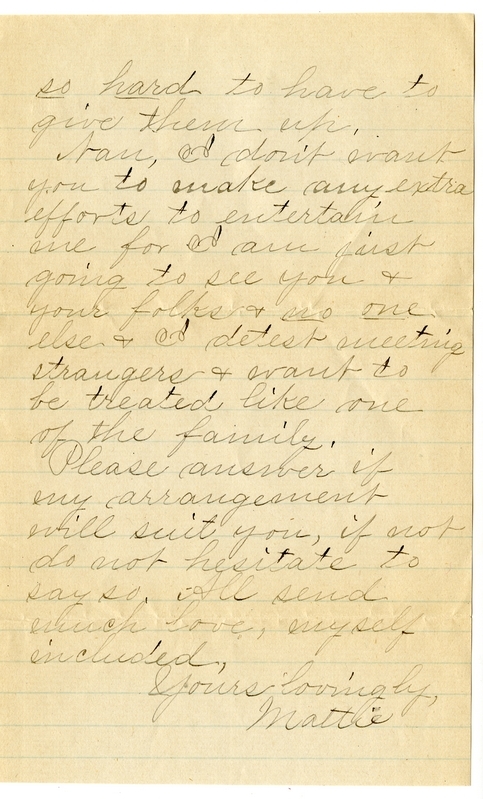 so hard to have to
give them up.
Nan, I don't want
you to make any extra
efforts to entertain
me for I am just
going to see you &
your folks & no one
else & I detest meeting
strangers & want to
be treated like one
of the family.
Please answer if
my arrangement
will suit you, if not
do not hesitate to
say so. All send
much love, myself
included,
Yours lovingly,
Mattie